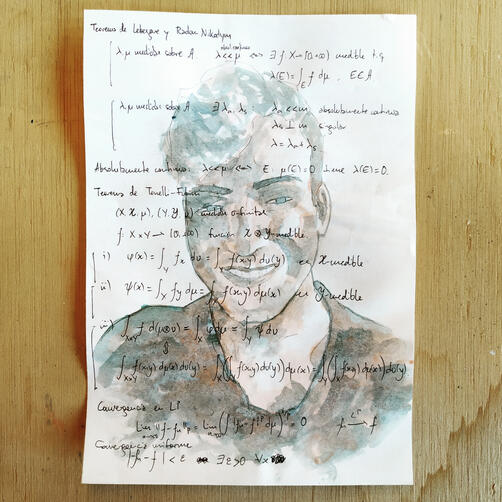 Teorema de Lebesgue y Radon Nikodym
λ, μ medidas sobre A λ<<μ <=> ∃ f X→[0,+∞) medible t.q.
λ(E) = ∫_E f dμ , E∈A
λ, μ medidas sobre A ∃ λa, λs : λa << m absolutamente continua
λs ⊥ m singular
λ = λa + λs
Absolutamente continua: λ<<μ <=> E: μ(E)=0 tiene λ(E)=0.
Teorema de Tonelli-Fubini
(X, X, μ), (Y, Y, υ) medidas σ-finitas
f: X×Y → [0,+∞) función X ⊗ Y-medble.
i) φ(x) = ∫_Y fx dυ = ∫_Y f(x,y) dυ(y) es X-medble
ii) ψ(x) = ∫_X fy dμ = ∫_X f(x,y) dμ(x) es Y-medble
iii) ∫_{X×Y} f d(μ⊗υ) = ∫_X φ dμ = ∫_Y ψ dυ
∫_{X×Y} f(x,y) dμ(x) dυ(y) = ∫_X(∫_Y f(x,y) dυ(y)) dμ(x) = ∫_Y(∫_X f(x,y) dμ(x)) dυ(y)
Convergencia en Lᵖ
lim_{n→∞} ||f-fn||p = lim_{n→∞} (∫ |fn-f|ᵖ dμ)^{1/p} = 0 fn →^{Lᵖ} f
Convergencia uniforme
|fn-f| < ε ∃ ε>0 ∀x